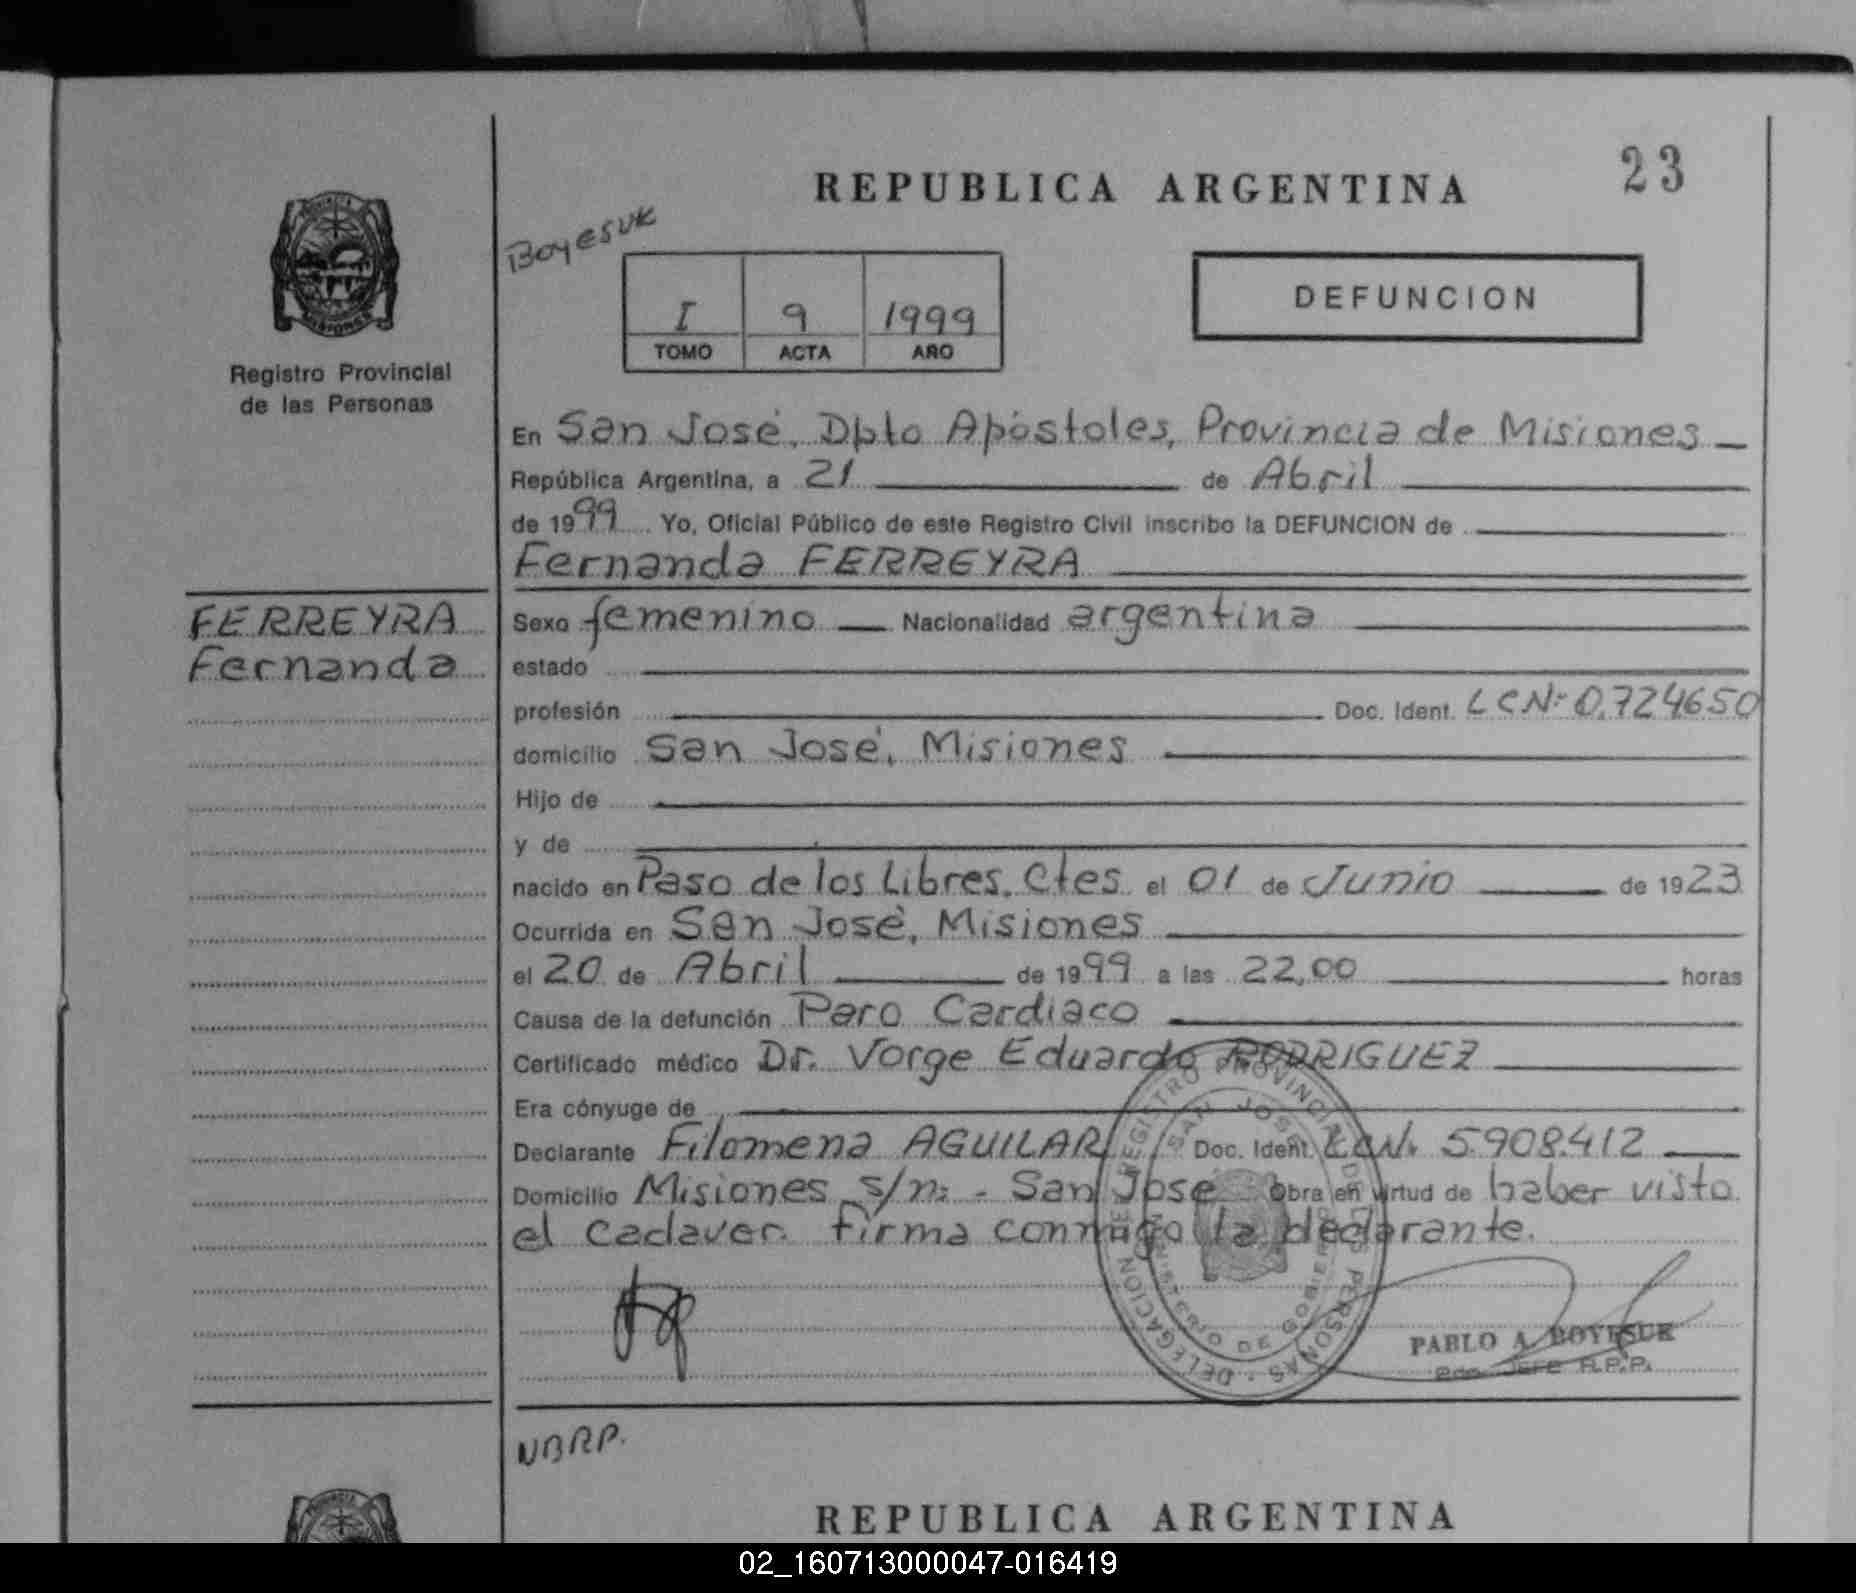 REPUBLICA ARGENTINA
23
PROVINCIA
MISIONES
Registro Provincial
de las Personas
Boyesuk
I 9 1999
TOMO ACTA AÑO
DEFUNCION
En San José, Dpto Apóstoles, Provincia de Misiones
República Argentina, a 21 de Abril
de 1999 Yo, Oficial Público de este Registro Civil inscribo la DEFUNCION de
Fernanda FERREYRA
FERREYRA
Fernanda
Sexo femenino Nacionalidad argentina
estado
profesión Doc. Ident. LCNº 0.724650
domicilio San José, Misiones
Hijo de
y de
nacido en Paso de los Libres, Ctes el 01 de Junio de 1923
Ocurrida en San José, Misiones
el 20 de Abril de 1999 a las 22,00 horas
Causa de la defunción Paro Cardiaco
Certificado médico Dr. Vorge Eduardo RODRIGUEZ
Era cónyuge de
Declarante Filomena AGUILAR Doc. Ident. LCNº 5.908.412
Domicilio Misiones s/nº - San José obra en virtud de haber visto
el cadaver. firma conmigo la declarante.
DELEGACION DE REGISTRO PROVINCIAL DE LAS PERSONAS
SAN JOSE
MINISTERIO DE GOBIERNO
PABLO A. BOYESUK
JEFE R.P.P.
NBRP.
PROVINCIA
REPUBLICA ARGENTINA
02_160713000047-016419